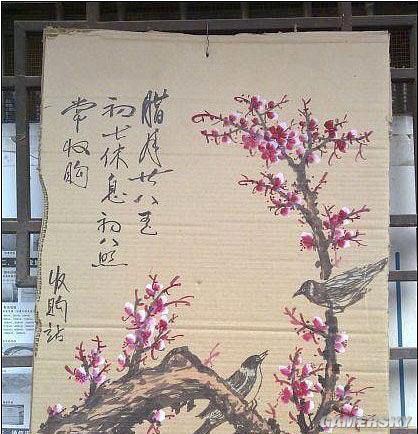 腊月廿八至
初七休息初八照
常收购
收购站
GAMERSKY